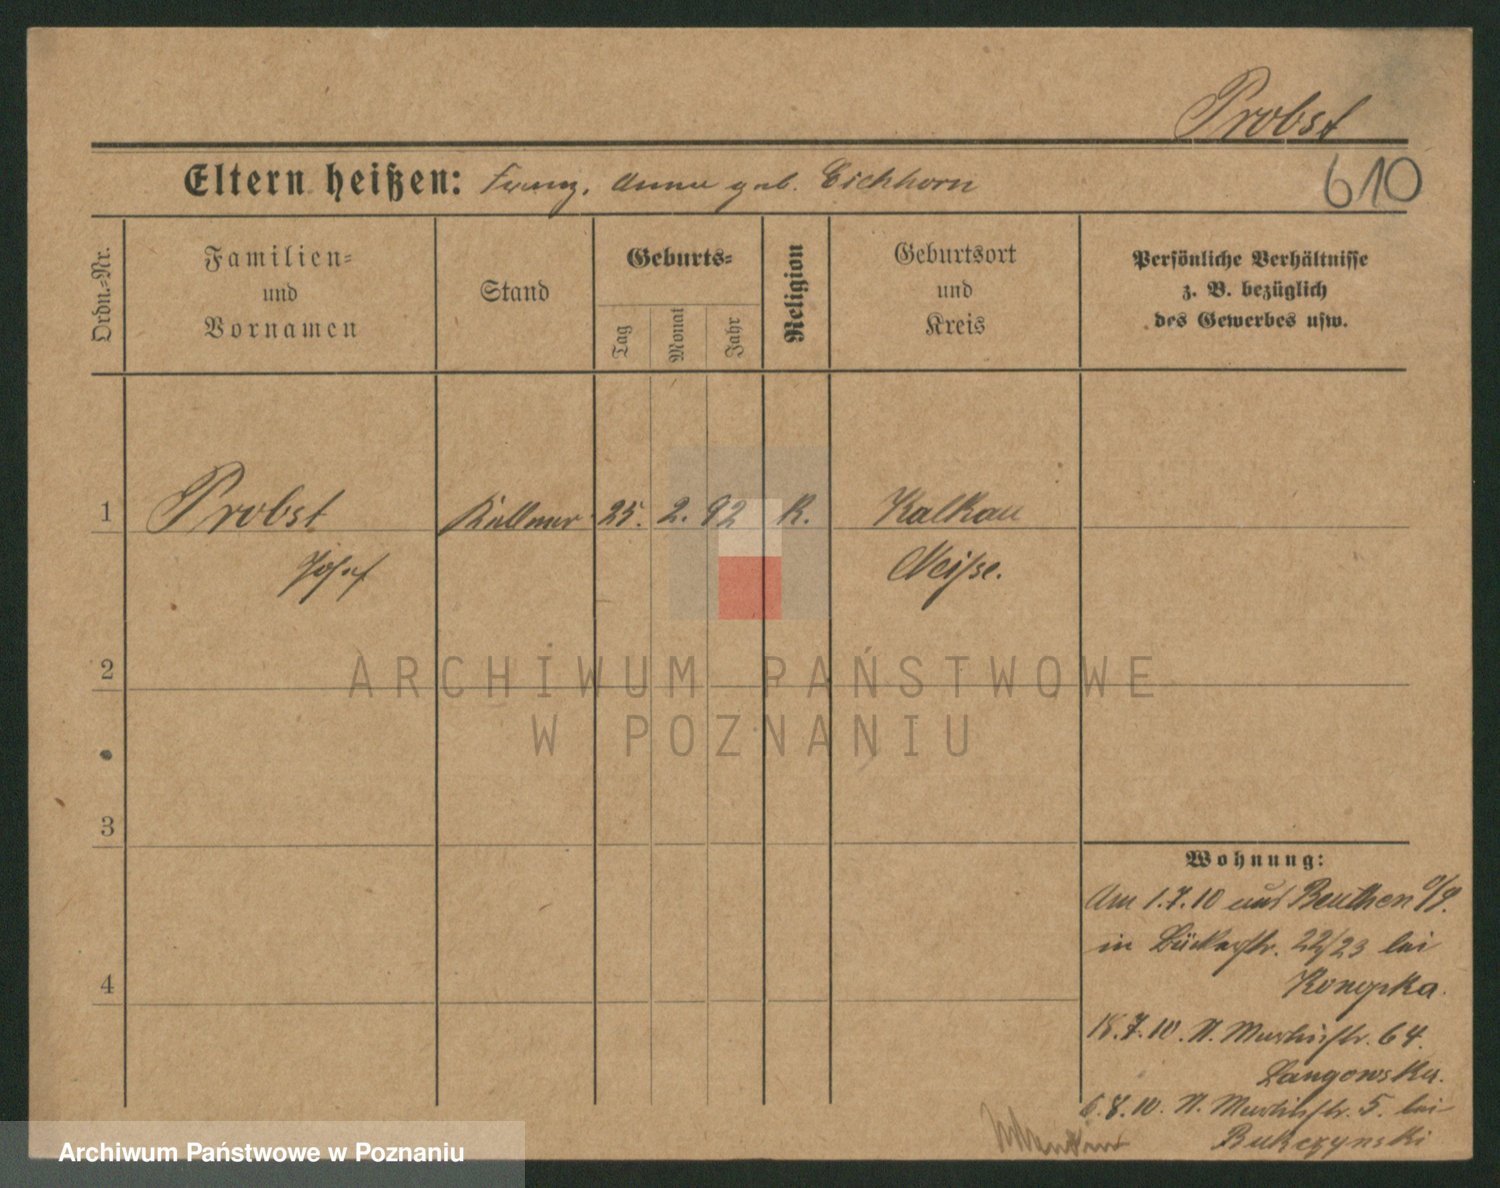 Probst
Eltern heißen: Franz, Anna geb. Eichhorn
610
Ordn.-Nr.
Familien-
und
Vornamen
Stand
Geburts-
Tag
Monat
Jahr
Religion
Geburtsort
und
Kreis
Persönliche Verhältnisse
z. B. bezüglich
des Gewerbes usw.
1
Probst
Kellner
25. 2. 92
K.
Kalkau
Josef
Neisse.
2
ARCHIWUM PAŃSTWOWE
W POZNANIU
3
Wohnung:
Am 1.7.10 aus Beuthen O/S.
in Bückerstr. 22/23 bei
Konopka.
4
18.7.10. St. Martinstr. 64.
Langowska.
6.8.10. St. Martinstr. 5. bei
Bukczynski
Archiwum Państwowe w Poznaniu